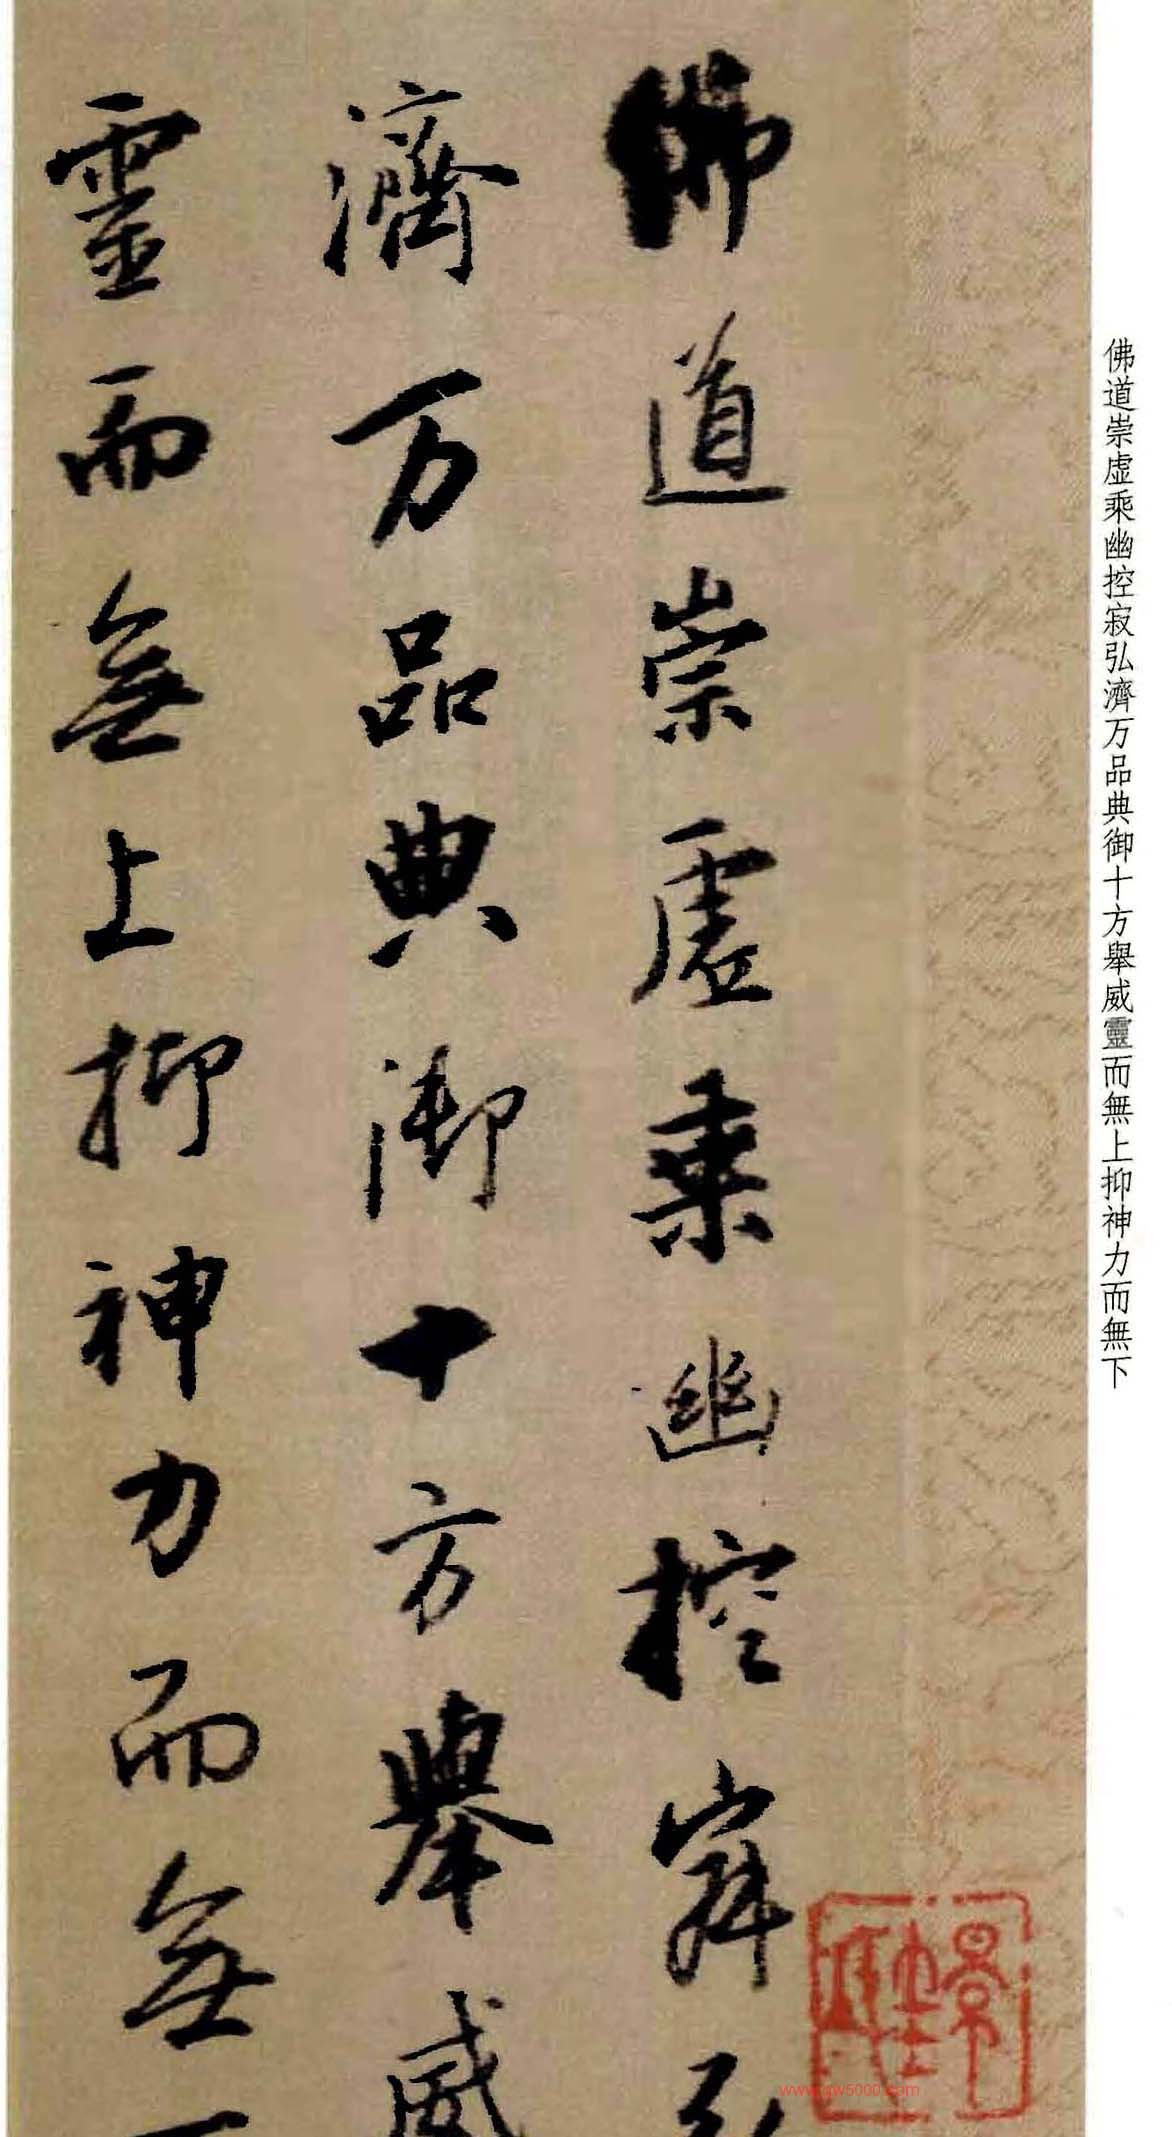 佛道崇虛乘幽控寂弘濟万品典御十方舉威靈而無上抑神力而無下
佛道崇虛乘幽控寂弘
濟万品典御十方舉威
靈而無上抑神力而無下